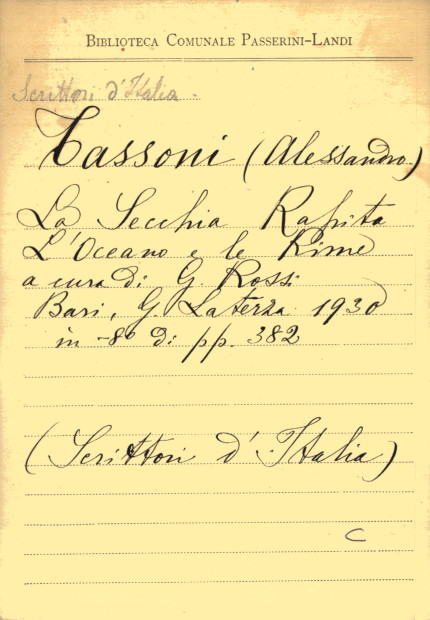 BIBLIOTECA COMUNALE PASSERINI-LANDI
Scrittori d'Italia.
Tassoni (Alessandro)
La Secchia Rapita
L'Oceano e le Rime
a cura di G. Rossi
Bari, G. Laterza 1930
in -8° di pp. 382
(Scrittori d'Italia)
C